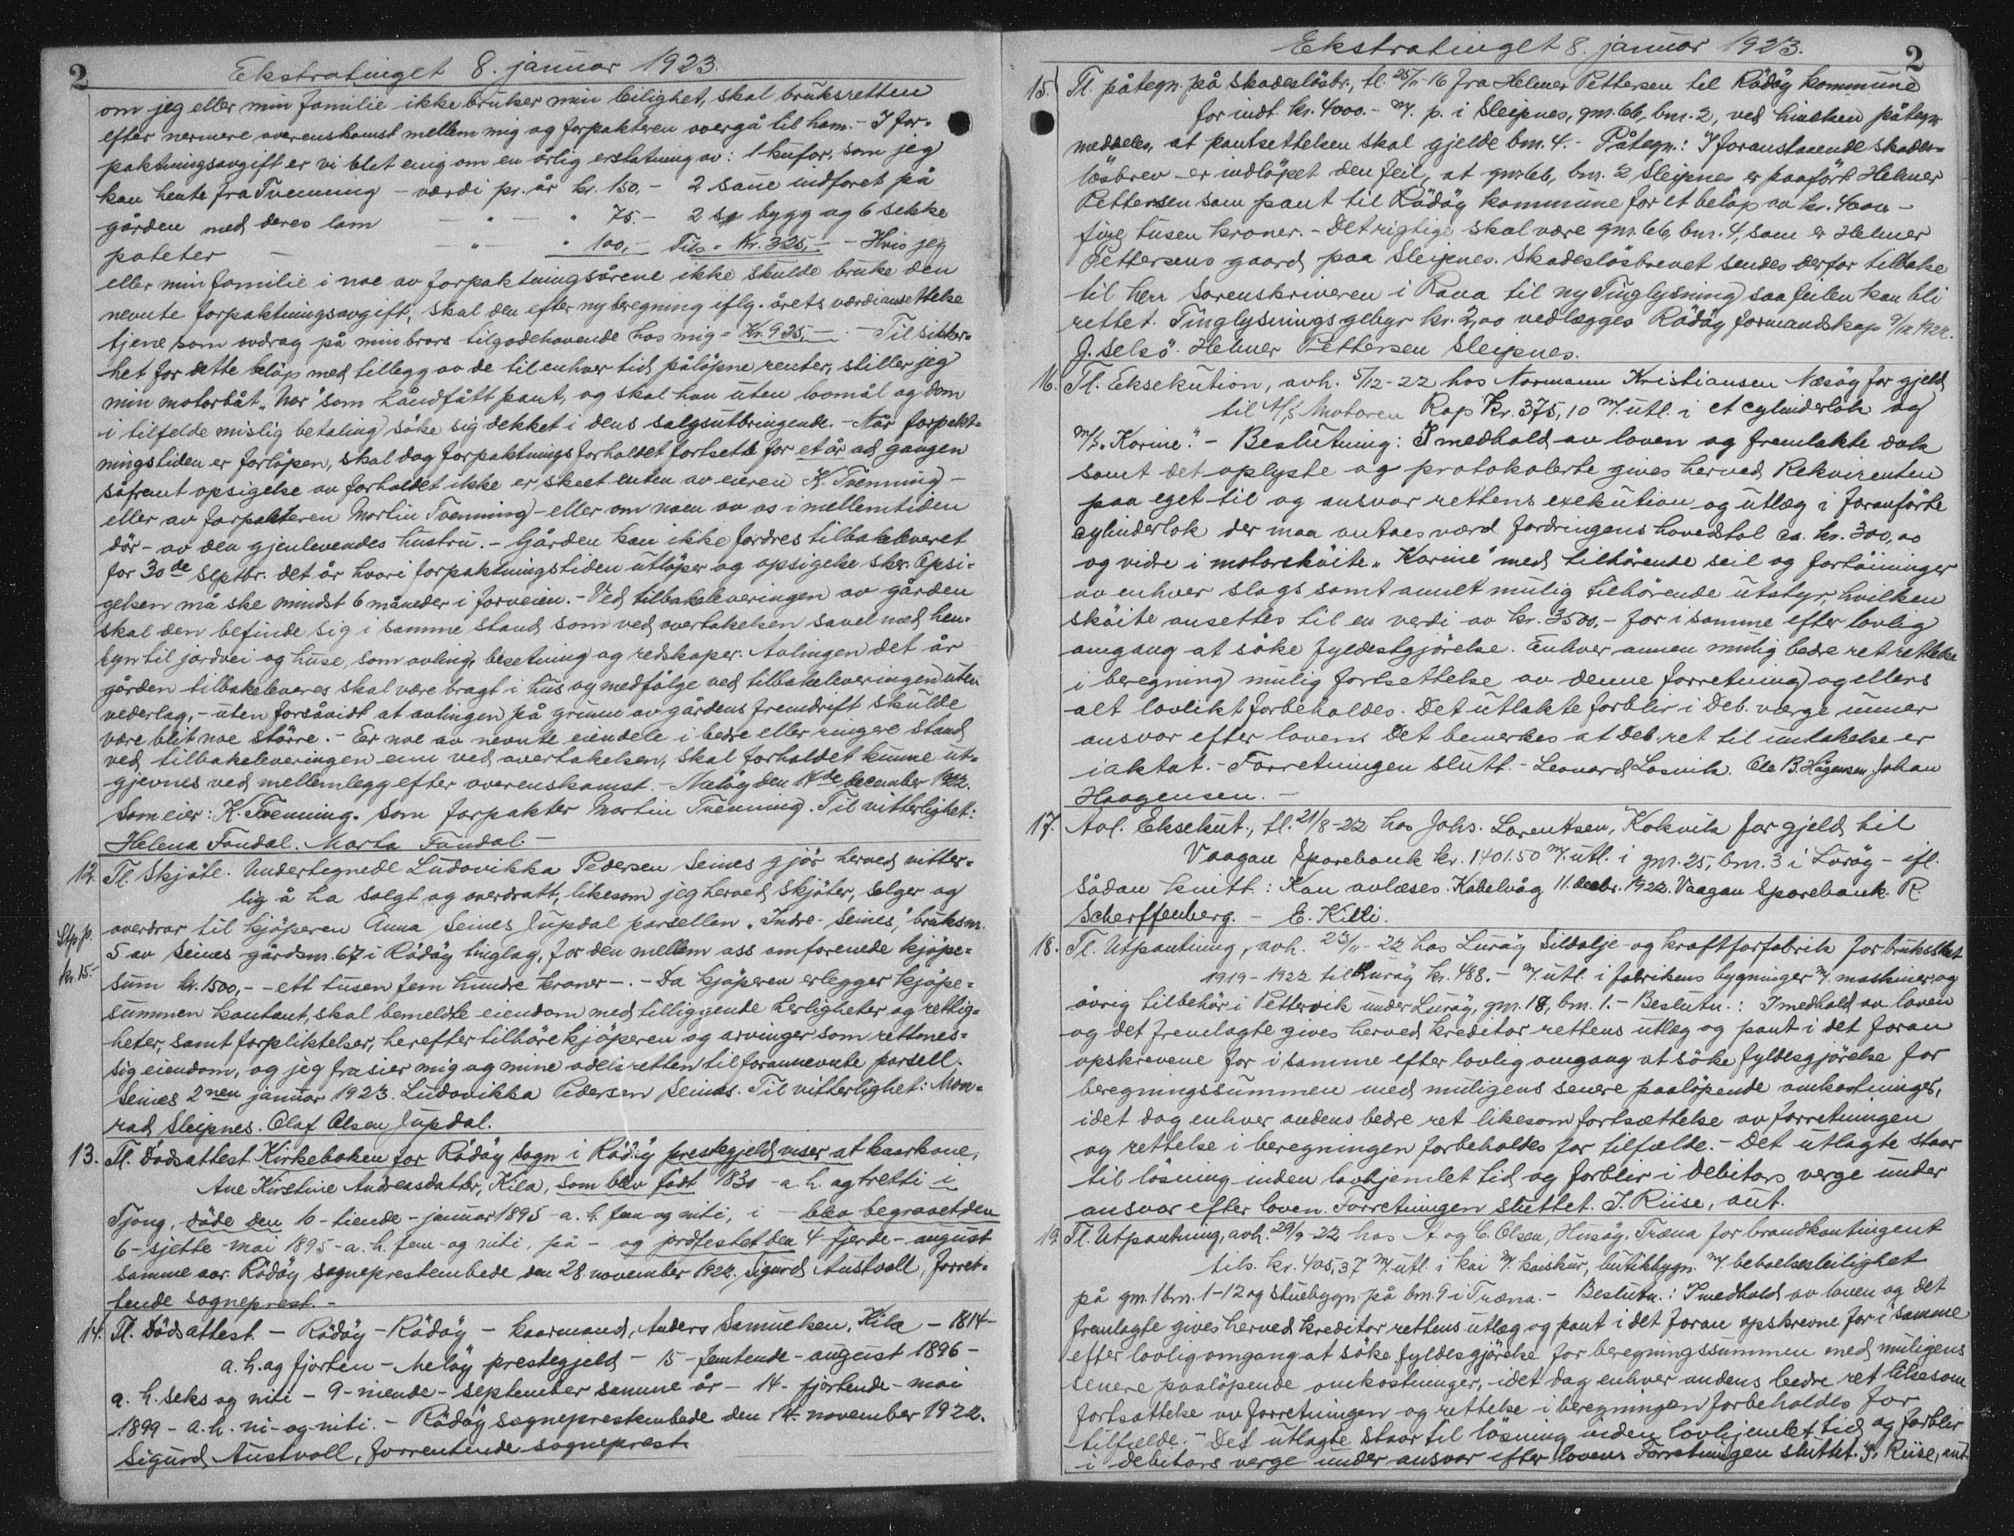 2
Ekstratinget 8. januar 1923.
om jeg eller min familie ikke bruker min leilighet, skal bruksretten
efter nermere overenskomst mellem mig og forpakteren overgå til ham. - I for-
paktningsavgift er vi blet enig om en årlig erstatning av: 1 kufor, som jeg
kan hente fra Tvenning - værdi pr. år kr. 150,- 2 saue indforet på
gården med deres lam - " - " 75,- 2 bygg og 6 sekke
poteter - " - " 100,- Tils. Kr. 325,- - Hvis jeg
eller min familie i noe av forpaktningsårene ikke skulde bruke den
nevnte forpaktningsavgift, skal den efter ny beregning iflg. årets værdiansettelse
tjene som avdrag på min brors tilgodehavende hos mig = Kr. 925,- . - Til sikker-
het for dette beløp med tillegg av de til enhver tid påløpne renter, stiller jeg
min motorbåt "Nor" som håndfått pant, og skal han uten lovmål og dom
i tilfelde mislig betaling søke sig dekket i dens salgsutbringende. - Når forpakt-
ningstiden er forløpen, skal dog forpaktningsforholdet fortsette for et år ad gangen
såfremt opsigelse av forholdet ikke er skeet enten av eieren K. Tvenning -
eller av forpakteren Martin Tvenning - eller om noen av os i mellemtiden
dör - av den gjenlevendes hustru. - Gården kan ikke fordres tilbakeleveret
for 30de septbr. det år hvori forpaktningstiden utlöper og opsigelse sker. Opsi-
gelsen må ske mindst 6 måneder i forveien. - Ved tilbakeleveringen av gården
skal den befinde sig i samme stand som ved overtakelsen savel med hen-
syn til jordvei og huse, som avling, besetning og redskaper. Avlingen det år
gården tilbakeleveres skal være bragt i hus og medfölge ved tilbakeleveringen uten
vederlag, - uten forsåvidt at avlingen på grunn av gårdens fremdrift skulde
være blit noe större. - Er noe av nevnte eiendele i bedre eller ringere stand
ved tilbakeleveringen enn ved overtakelsen, skal forholdet kunne ut-
gjevnes ved mellemlegg efter overenskomst. - Melöy den 14de december 1922.
Som eier: K. Tvenning. Som forpakter Martin Tvenning. Til vitterlighet:
Helena Fondal. Marta Fondal -
12. Tl. Skjöte. Undertegnede Ludovikka Pedersen Seines gjör herved vitter-
lig å ha solgt og overdratt, likesom jeg herved skjöter, selger og
Stp. p. overdrar til kjöperen Anna Seines Jupdal parsellen "Indre-Seines", bruksnr.
5 av Seines gårdsnr. 67 i Rödöy tinglag, for den mellem oss omforenede kjöpe-
kr. 15.- sum kr. 1500,- - ett tusen fem hundre kroner -. - Da kjöperen erlegger kjöpe-
summen kontant, skal bemeldte eiendom med tilliggende herligheter og rettig-
heter, samt forpliktelser, herefter tilhöre kjöperen og arvinger som rettmes-
sig eiendom, og jeg frasier mig og mine odelsretten til forannevnte parsell.
Seines 2nen januar 1923. Ludovikka Pedersen Seines. Til vitterlighet: Mon-
rad Sleipnes. Olaf Olsen Jupdal.
13. Tl. Dödsattest. Kirkeboken for Rödöy sogn i Rödöy prestegjeld viser at kaarkone,
Ane Kirstine Andreasdatter, Kila, som blev födt 1830 - a. h. og tretti i
Tjong, döde den 10 - tiende - januar 1895 - a. h. fem og niti, i - blev begravet den
6 - sjette - mai 1895 - a. h. fem - og niti, på - og jordfestet den 4 fjerde - august
samme aar. Rödöy sogneprestembede den 28. november 1922. Sigurd Austvoll, forret-
tende sogneprest. -
14. Tl. Dödsattest - Rödöy - Rödöy - kaarmand, Anders Samuelsen, Kila - 1814 -
a. h. og fjorten - Melöy prestegjeld - 15 - femtende - august 1896 -
a. h. seks og niti - 9 - niende - september samme år - 14 - fjortende - mai
1899 - a. h. ni - og niti. - Rödöy sogneprestembede den 14. november 1922.
Sigurd Austvoll, forrettende sogneprest.
Ekstratinget 8. januar 1923.
2
15. Tl. påtegn. på Skadeslösbr., tl. 25/11-16 fra Helmer Pettersen til Rödöy kommune
for indt kr. 4000.- m/ p. i Sleipnes, gnr. 66, bnr. 2, ved hvilken påtegn.
meddeles, at pantsettelsen skal gjelde bnr. 4. - Påtegn.: I foranstaaende skades-
lösbrev er indlöpet den feil, at gnr. 66, bnr. 2 Sleipnes er paaført Helmer
Pettersen som pant til Rödöy kommune for et belöp av kr. 4000 -
fire tusen kroner. - Det rigtige skal være gnr. 66, bnr. 4, som er Helmer
Pettersens gaard paa Sleipnes. Skadeslösbrevet sendes derfor tilbake
til herr sorenskriveren i Rana til ny Tinglysning saa feilen kan bli
rettet. Tinglysningsgebyr kr. 2,00 vedlægges. Rödöy formandskap 9/12 1922.
J. Selsö. Helmer Pettersen Sleipnes.
16. Tl. Eksekution, avh. 5/12-22 hos Normann Kristiansen Nesöy for gjeld
til A/S Motoren Rap Kr. 375,10 m/ utl. i et cylinderlok og
m/s "Korine". - Beslutning: I medhold av loven og fremlekte dok
samt det oplyste og protokolerte gives herved Rekvirenten
paa eget til og ansvar rettens exekution og utlæg i foranförte
cylinderlok der maa antaes værd fordringens hovedstol ca. kr. 300,00
og vidre i motorsköite "Korine" med tilhörende seil og fortöininger
av enhver slags samt annet mulig tilhörende utstyr, hvilken
sköite ansettes til en verdi av kr. 3500,- for i samme efter lovlig
omgang at söke fyldestgjörelse. Enhver annen mulig bedre ret rettelse
i beregning mulig fortsettelse av denne forretning og ellers
alt lovlikt forbeholdes. Det utlakte forblir i Deb. værge under
ansvar efter loven. Det bemerkes at Deb. ret til undtakelse er
iaktat. - Forretningen slutt. - Leonard Losvik. Ole B. Hågensen. Johan
Haagensen. -
17. Avl. Eksekut., tl. 21/8-22 hos Johs. Lorentsen, Kokvik for gjeld til
Vaagan Sparebank kr. 1401.50 m/ utl. i gnr. 25, bnr. 3 i Luröy - ifl.
sådan kvitt.: Kan avlæses. Kabelvåg 11. decbr. 1922. Vaagan Sparebank. R
Scherffenberg. - E. Killi.
18. Tl. Utpantning, avh. 23/11-22 hos Luröy Sildolje- og kraftforfabrik for bruksskat
1919 - 1922 til Luröy kr. 488.- m/ utl. i fabrikens bygninger m/ maskiner og
övrig tilbehör i Pettervik under Luröy, gnr. 18, bnr. 1. - Beslutn.: I medhold av loven
og det fremlagte gives herved kreditor rettens utleg og pant i det foran
opskrevene for i samme efter lovlig omgang at söke fyldesgjörelse for
beregningssummen med muligens senere paalöpende omkostninger,
idet dog enhver andens bedre ret likesom fortsættelse av forretningen
og rettelse i beregningen forbeholdes for tilfælde. - Det utlagte staar
til lösning inden lovhjemlet tid og forblir i debitors verge under
ansvar efter loven. Forretningen sluttet. J. Riise, aut.
19. Tl. Utpantning, avh. 29/9-22 hos A og C. Olsen, Husöy, Træna for brandkontingent
tils. kr. 405,37 m/ utl. i kai m/ kaiskur, butikbygn. m/ beboelsesleilighet
på gnr. 1 bnr. 1-12 og stuebygn. på bnr. 9 i Træna. - Beslutn.: I medhold av loven og det
fremlagte gives herved kreditor rettens utlæg og pant i det foran opskrevne for i samme
efter lovlig omgang at söke fyldesgjörelse for beregningssummen med muligens
senere paalöpende omkostninger, idet dog enhver andens bedre ret likesom
fortsættelse av forretningen og rettelse i beregningen forbeholdes for
tilfælde. - Det utlagte staar til lösning inden lovhjemlet tid og forblir
i debitors verge under ansvar efter loven. Forretningen sluttet. J. Riise, aut.